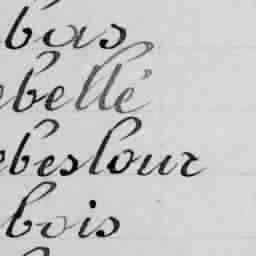 bas
ebellé
ebeslour
bois